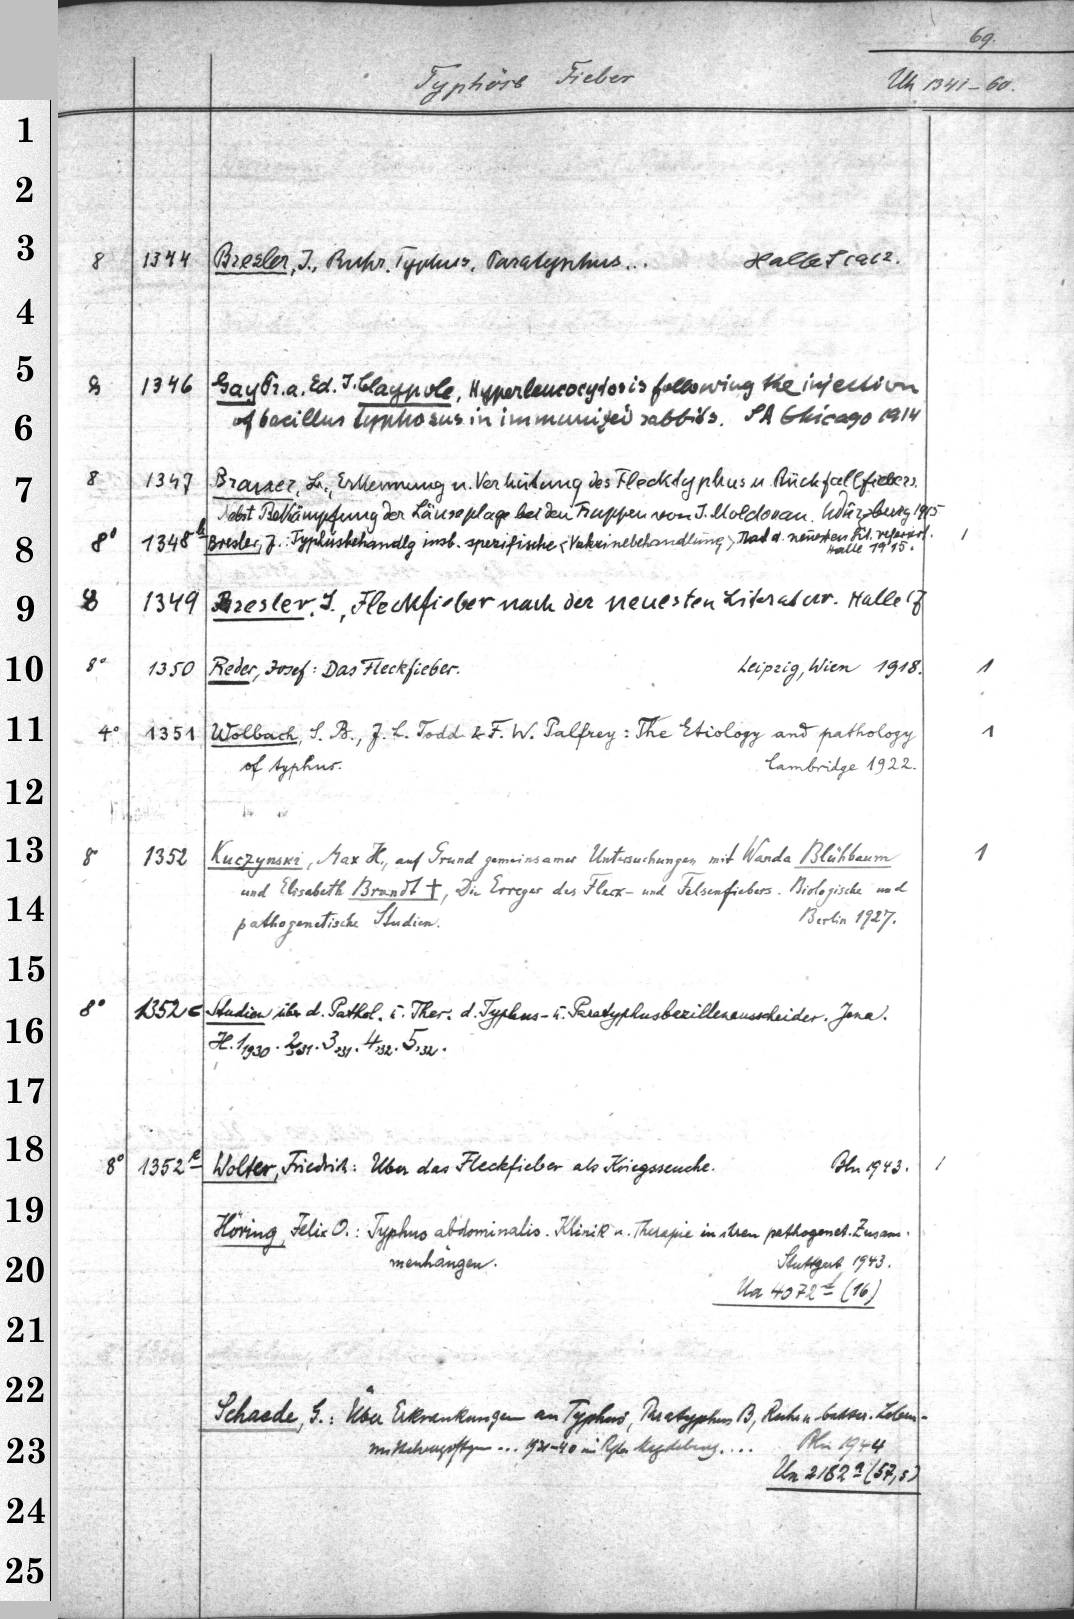 69.
Typhöse Fieber Uh 1341-60.
1
2
3 8 1344 Bresler, J., Ruhr, Typhus, Paratyphus... Halle S 1912.
4
5 8 1346 Gay Fr. a. Ed. J. Claypole, Hyperleucocytosis following the injection
6 of bacillus typhosus in immunized rabbits. SA Chicago 1914
7 8 1347 Brauer, L., Erkennung u. Verhütung des Flecktyphus u. Rückfallfiebers.
Nebst Bekämpfung der Läuseplage bei den Truppen von J. Moldovan. Würzburg 1915
8 8° 1348 b Bresler, J.: Typhusbehandlg insb. spezifische <Vakzinebehandlung> Nach d. neuesten Lit. referiert. 1
Halle 1915.
9 8 1349 Bresler, J., Fleckfieber nach der neuesten Literatur. Halle
10 8° 1350 Reder, Josef: Das Fleckfieber. Leipzig, Wien 1918. 1
11 4° 1351 Wolbach, S. B., J. L. Todd & F. W. Palfrey: The Etiology and pathology 1
of typhus. Cambridge 1922.
12
13 8° 1352 Kuczynski, Max H., auf Grund gemeinsamer Untersuchungen mit Wanda Blühbaum 1
14 und Elisabeth Brandt †, Die Erreger des Fleck- und Felsenfiebers. Biologische und
pathogenetische Studien. Berlin 1927.
15
8° 1352 c Studien über d. Pathol. u. Ther. d. Typhus- u. Paratyphusbazillenausscheider. Jena.
16 H. 1, 1930. 2, 31. 3, 31. 4, 32. 5, 32.
17
18 8° 1352 e Wolter, Friedrich: Über das Fleckfieber als Kriegsseuche. Bln 1943. 1
19 Höring, Felix O.: Typhus abdominalis. Klinik u. Therapie in ihren pathogenet. Zusam-
20 menhängen. Stuttgart 1943.
Ua 4072 (16)
21
22 Schaede, G.: Über Erkrankungen an Typhus, Paratyphus B, Ruhr u. bakter. Leben-
23 ... Magdeburg.... Bln 1944
Un 2182 a (57,5)
24
25